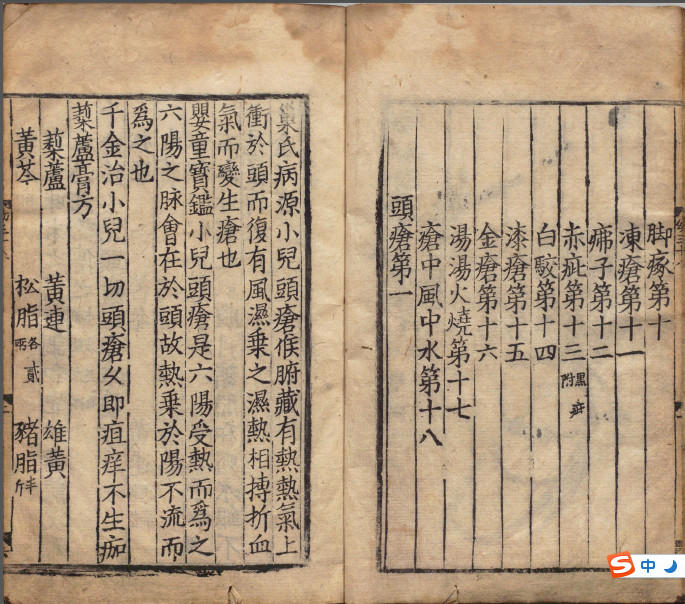 脚瘃第十
凍瘡第十一
疿子第十二
赤疵第十三黑疵附
白駮第十四
漆瘡第十五
金瘡第十六
湯湯火燒第十七
瘡中風中水第十八
頭瘡第一
巢氏病源小兒頭瘡候腑藏有熱熱氣上
衝於頭而復有風濕乗之濕熱相搏折血
氣而變生瘡也
嬰童寶鑑小兒頭瘡是六陽受熱而爲之
六陽之脉會在於頭故熱乗於陽不流而
爲之也
千金治小兒一切頭瘡乆即疽痒不生痂
藜蘆膏方
藜蘆 黃連 雄黃
黃芩 松脂各貳兩 豬脂半斤
S中